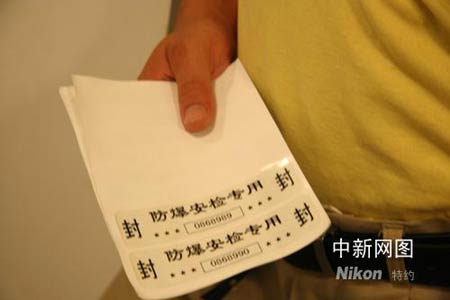 封 防爆安检专用 封
*** 0868989 ***
封 防爆安检专用 封
*** 0868990 ***
中新网图
Nikon 特约